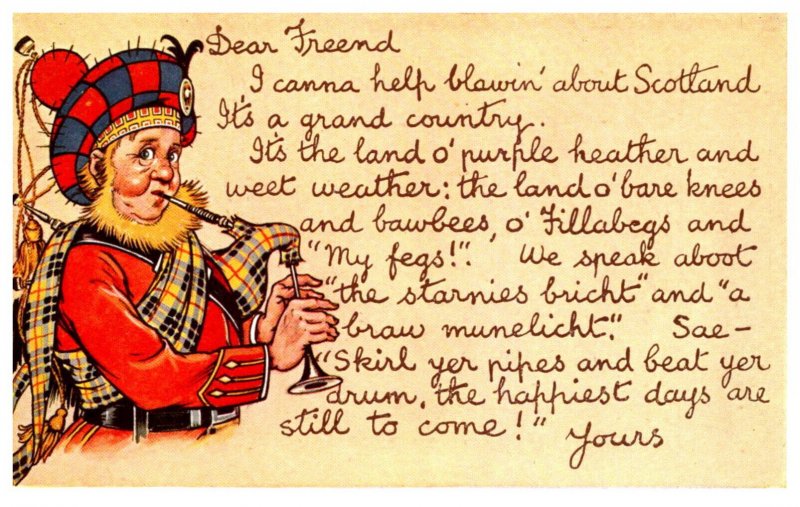 Dear Freend
I canna help blawin' about Scotland
It's a grand country.
It's the land o' purple heather and
weet weather: the land o' bare knees
and bawbees, o' Fillabegs and
"My fegs!". We speak aboot
"the starnies bricht" and "a
braw munelicht." Sae —
"Skirl yer pipes and beat yer
drum, the happiest days are
still to come!" Yours